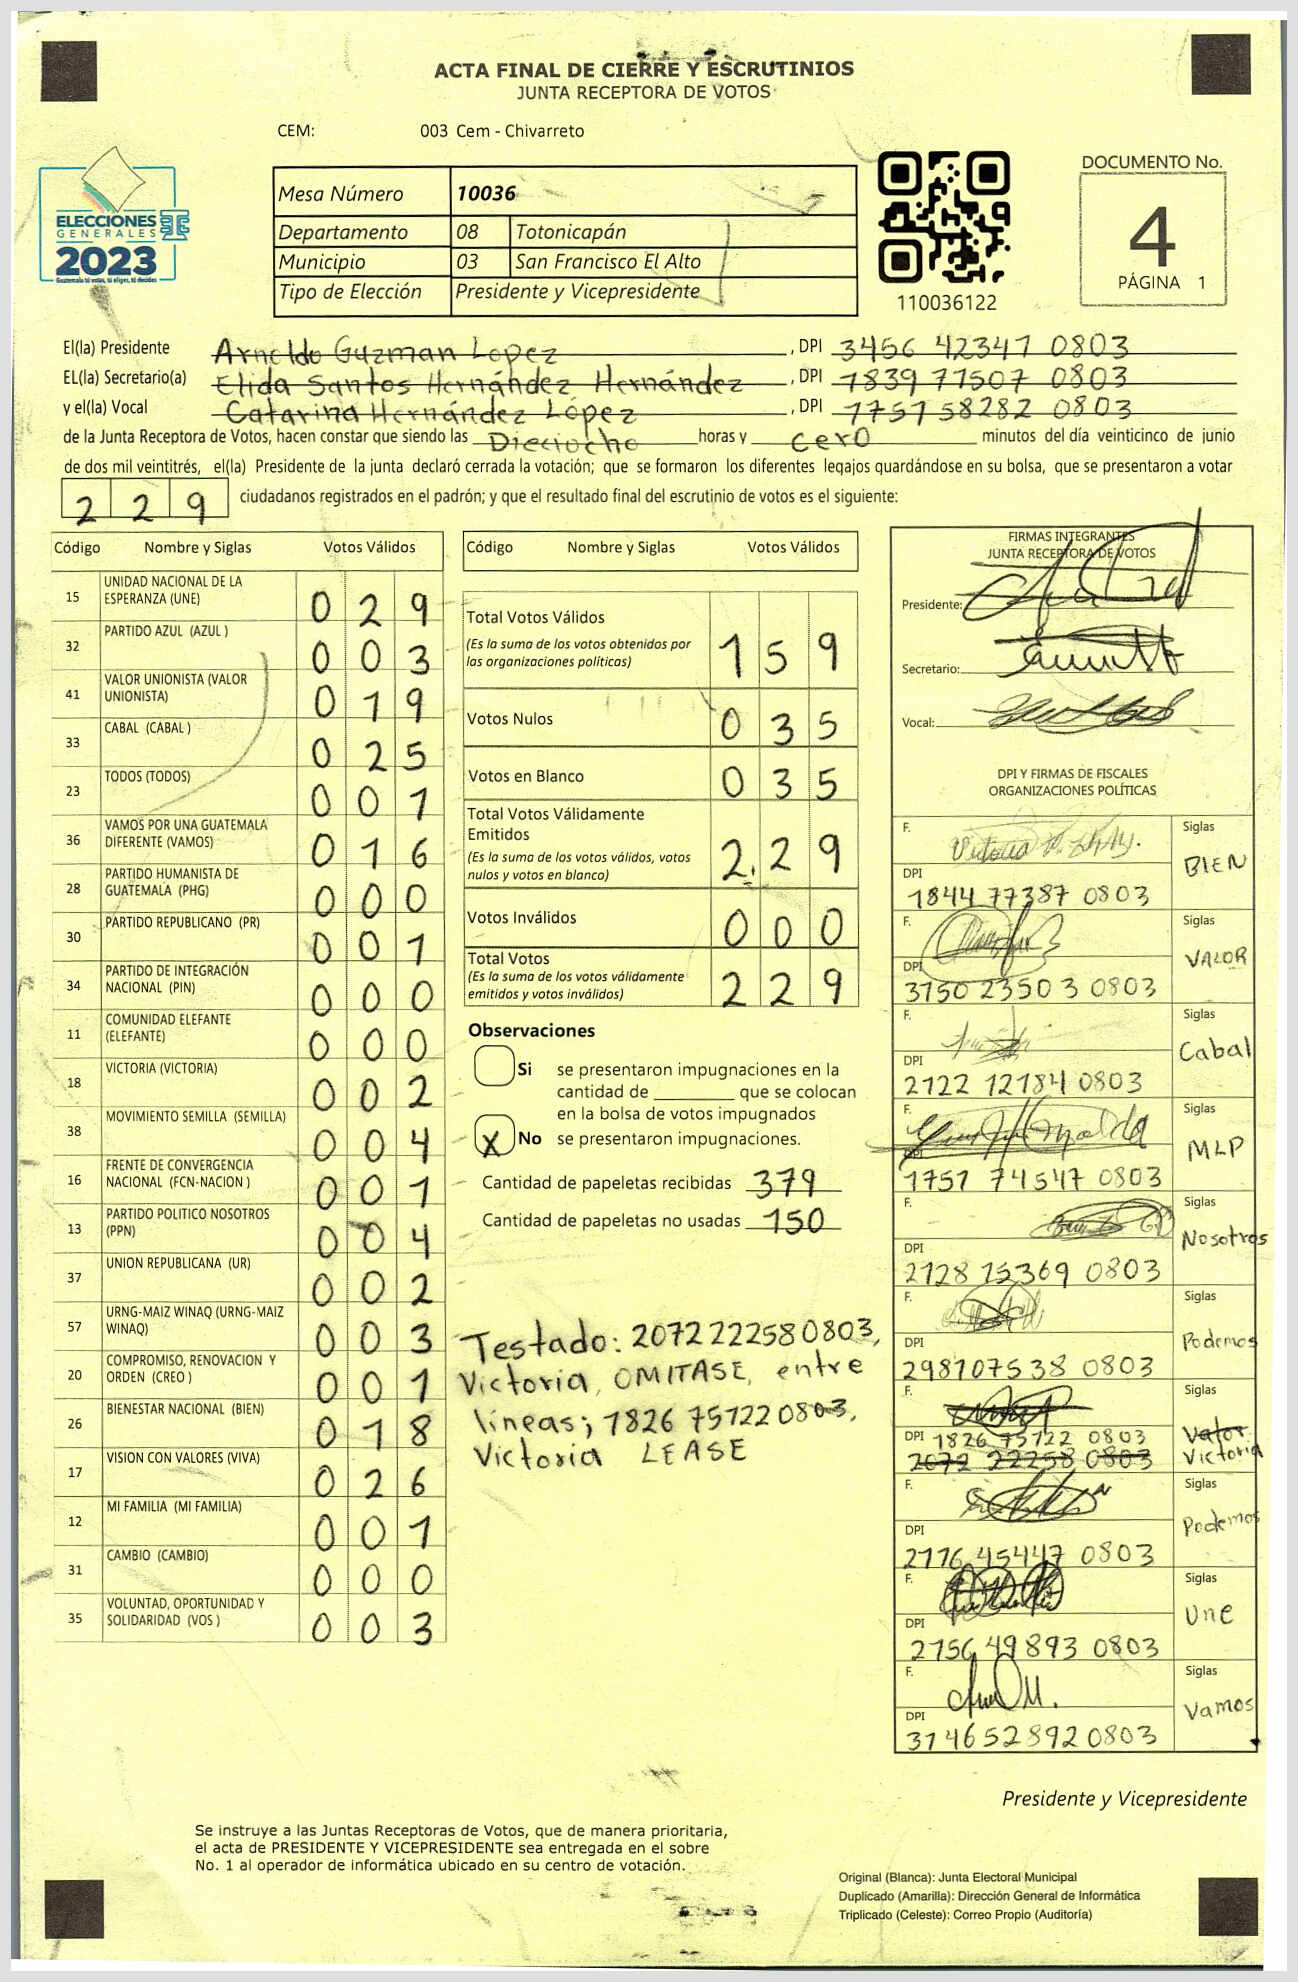 ACTA FINAL DE CIERRE Y ESCRUTINIOS
JUNTA RECEPTORA DE VOTOS
CEM: 003 Cem - Chivarreto
ELECCIONES
GENERALES
2023
Guatemala tú votas, tú eliges, tú decides
Mesa Número 10036
Departamento 08 Totonicapán
Municipio 03 San Francisco El Alto
Tipo de Elección Presidente y Vicepresidente
110036122
DOCUMENTO No.
4
PÁGINA 1
El(la) Presidente Arnoldo Guzman Lopez, DPI 3456 42347 0803
EL(la) Secretario(a) Elida Santos Hernández Hernández, DPI 1839 77507 0803
y el(la) Vocal Catarina Hernández López, DPI 1757 58282 0803
de la Junta Receptora de Votos, hacen constar que siendo las Dieciocho horas y cero minutos del día veinticinco de junio
de dos mil veintitrés, el(la) Presidente de la junta declaró cerrada la votación; que se formaron los diferentes legajos quardándose en su bolsa, que se presentaron a votar
229 ciudadanos registrados en el padrón; y que el resultado final del escrutinio de votos es el siguiente:
Código Nombre y Siglas Votos Válidos
15 UNIDAD NACIONAL DE LA ESPERANZA (UNE) 029
32 PARTIDO AZUL (AZUL ) 003
41 VALOR UNIONISTA (VALOR UNIONISTA) 019
33 CABAL (CABAL ) 025
23 TODOS (TODOS) 001
36 VAMOS POR UNA GUATEMALA DIFERENTE (VAMOS) 016
28 PARTIDO HUMANISTA DE GUATEMALA (PHG) 000
30 PARTIDO REPUBLICANO (PR) 001
34 PARTIDO DE INTEGRACIÓN NACIONAL (PIN) 000
11 COMUNIDAD ELEFANTE (ELEFANTE) 000
18 VICTORIA (VICTORIA) 002
38 MOVIMIENTO SEMILLA (SEMILLA) 004
16 FRENTE DE CONVERGENCIA NACIONAL (FCN-NACION ) 001
13 PARTIDO POLITICO NOSOTROS (PPN) 004
37 UNION REPUBLICANA (UR) 002
57 URNG-MAIZ WINAQ (URNG-MAIZ WINAQ) 003
20 COMPROMISO, RENOVACION Y ORDEN (CREO ) 001
26 BIENESTAR NACIONAL (BIEN) 018
17 VISION CON VALORES (VIVA) 026
12 MI FAMILIA (MI FAMILIA) 001
31 CAMBIO (CAMBIO) 000
35 VOLUNTAD, OPORTUNIDAD Y SOLIDARIDAD (VOS ) 003
Código Nombre y Siglas Votos Válidos
Total Votos Válidos
(Es la suma de los votos obtenidos por
las organizaciones políticas) 159
Votos Nulos 035
Votos en Blanco 035
Total Votos Válidamente
Emitidos
(Es la suma de los votos válidos, votos
nulos y votos en blanco) 229
Votos Inválidos 000
Total Votos
(Es la suma de los votos válidamente
emitidos y votos inválidos) 229
Observaciones
Si se presentaron impugnaciones en la
cantidad de que se colocan
en la bolsa de votos impugnados
X No se presentaron impugnaciones.
Cantidad de papeletas recibidas 379
Cantidad de papeletas no usadas 150
Testado: 2072222580803,
Victoria, OMITASE, entre
líneas; 1826 75122 0803,
Victoria LEASE
FIRMAS INTEGRANTES
JUNTA RECEPTORA DE VOTOS
Presidente:
Secretario:
Vocal:
DPI Y FIRMAS DE FISCALES
ORGANIZACIONES POLÍTICAS
F. Siglas
DPI 1844 77387 0803 BIEN
F. Siglas
DPI 3150 23503 0803 VALOR
F. Siglas
DPI 2122 12184 0803 Cabal
F. Siglas
DPI 1757 74547 0803 MLP
F. Siglas
DPI 2128 15369 0803 Nosotros
F. Siglas
DPI 298107538 0803 Podemos
F. Siglas
DPI 1826 75122 0803 Valor
2072 22258 0803 Victoria
F. Siglas
DPI 2776 45447 0803 Podemos
F. Siglas
DPI 2756 49893 0803 Une
F. Siglas
DPI 3146528920803 Vamos
Presidente y Vicepresidente
Se instruye a las Juntas Receptoras de Votos, que de manera prioritaria,
el acta de PRESIDENTE Y VICEPRESIDENTE sea entregada en el sobre
No. 1 al operador de informática ubicado en su centro de votación.
Original (Blanca): Junta Electoral Municipal
Duplicado (Amarilla): Dirección General de Informática
Triplicado (Celeste): Correo Propio (Auditoría)